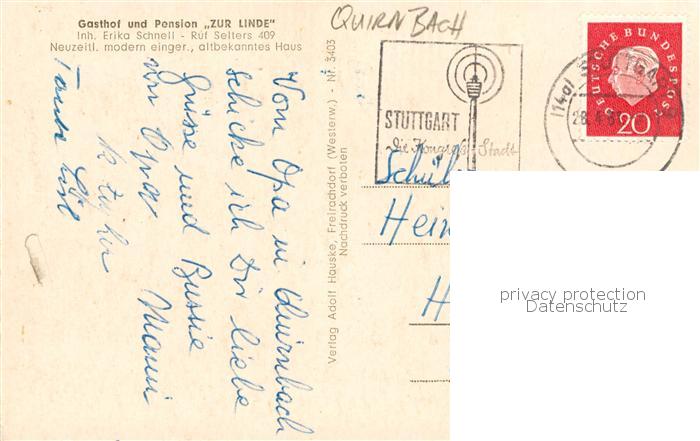 Gasthof und Pension „ZUR LINDE"
Inh. Erika Schnell - Ruf Selters 409
Neuzeitl. modern einger., altbekanntes Haus
QUIRNBACH
STUTTGART
die Kongress-Stadt
(14a) STUTTGART
DEUTSCHE BUNDESPOST
20
Vom Opa in Quirnbach
schicke ich Dir liebe
Grüsse und Bussie
von Opa Mami
Tante
Verlag Adolf Hauske, Freirachdorf (Westerw.) - Nr. 3403
Nachdruck verboten
Schül
Hein
H
privacy protection
Datenschutz